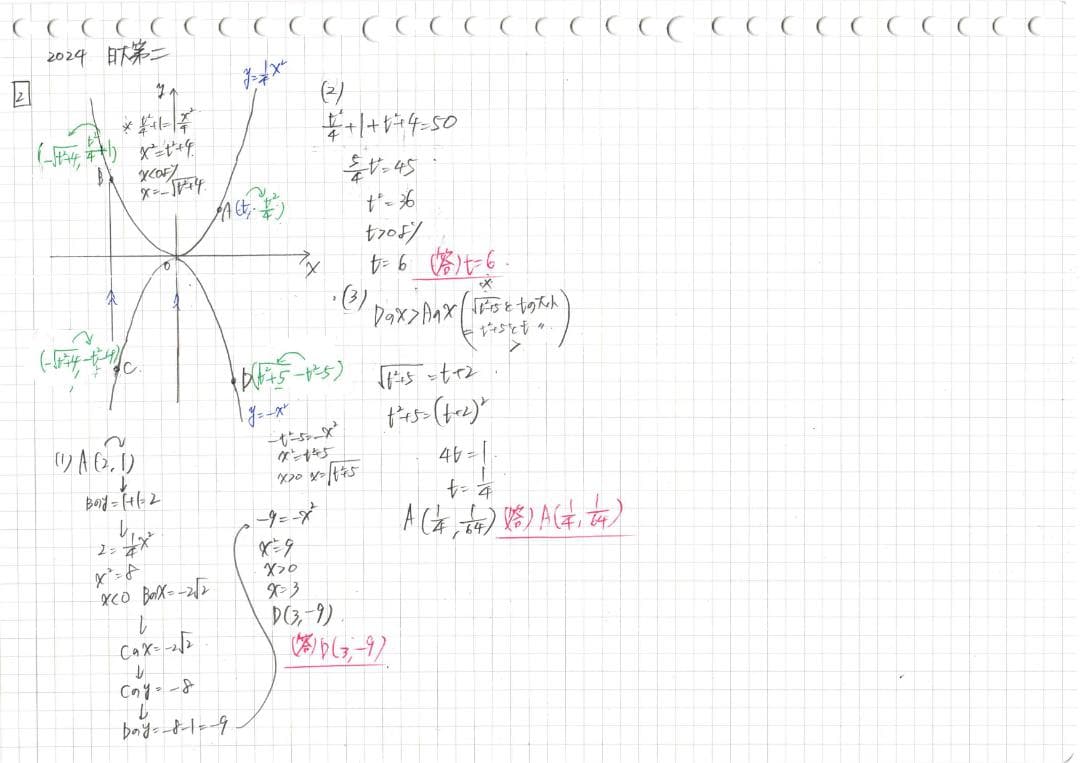 2024 日大第二
2
y
y=1/4x²
※ t²/4+1=x²/4
x²=t²+4
x<0より
x=-√t²+4
(-√t²+4, t²/4+1)
B
A(t, t²/4)
O
x
(-√t²+4, -t²-4)
C
D(√t²+5, -t²-5)
y=-x²
-t²-5=-x²
x²=t²+5
x>0 x=√t²+5
(1) A(2,1)
↓
Bのy=1+1=2
↓
2=1/4x²
x²=8
x<0 Bのx=-2√2
↓
Cのx=-2√2
↓
Cのy=-8
↓
Dのy=-8-1=-9
-9=-x²
x²=9
x>0
x=3
D(3,-9)
(答)D(3,-9)
(2)
t²/4+1+t²+4=50
5/4t²=45
t²=36
t>0より
t=6 (答)t=6
(3)
※
Dのx>Aのx(√t²+5とtの大小
=t²+5とt² 〃
>)
√t²+5=t+2
t²+5=(t+2)²
4t=1
t=1/4
A(1/4, 1/64) (答)A(1/4, 1/64)